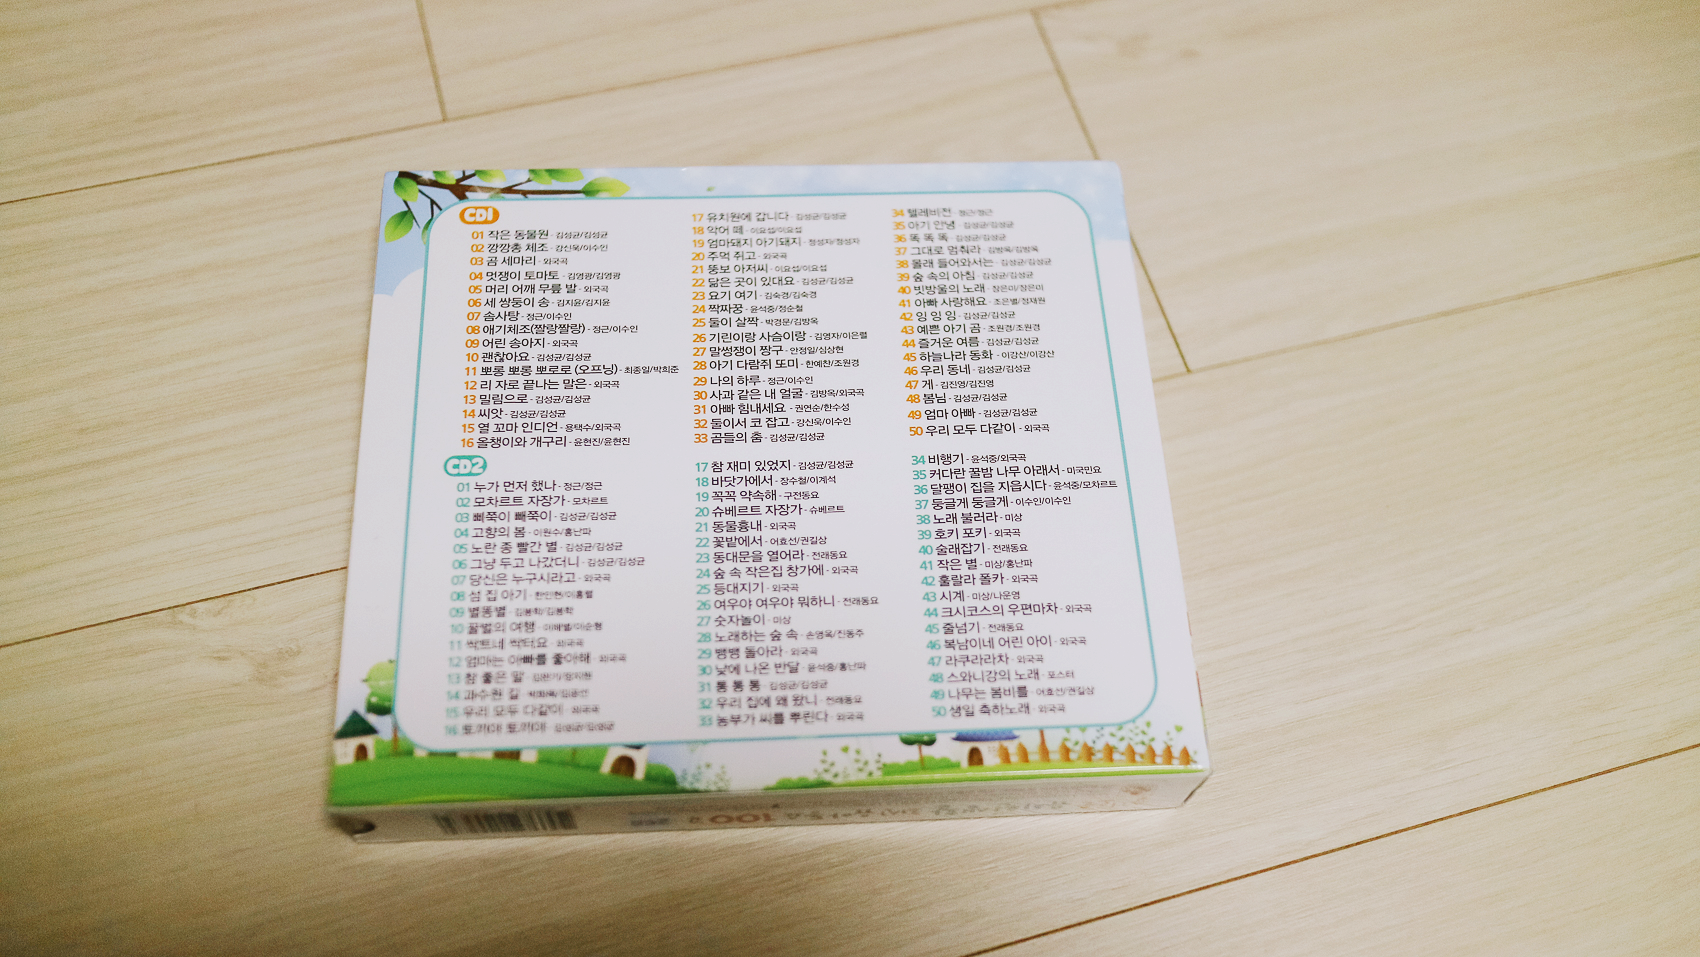 CD1
01 작은 동물원 - 김성균/김성균
02 깡깡총 체조 - 강신욱/이수인
03 곰 세마리 - 외국곡
04 멋쟁이 토마토 - 김영광/김영광
05 머리 어깨 무릎 발 - 외국곡
06 세 쌍둥이 송 - 김지윤/김지윤
07 솜사탕 - 정근/이수인
08 애기체조(짤랑짤랑) - 정근/이수인
09 어린 송아지 - 외국곡
10 괜찮아요 - 김성균/김성균
11 뽀롱 뽀롱 뽀로로 (오프닝) - 최종일/박희준
12 리 자로 끝나는 말은 - 외국곡
13 밀림으로 - 김성균/김성균
14 씨앗 - 김성균/김성균
15 열 꼬마 인디언 - 용택수/외국곡
16 올챙이와 개구리 - 윤현진/윤현진
17 유치원에 갑니다 - 김성균/김성균
18 악어 떼 - 이요섭/이요섭
19 엄마돼지 아기돼지 - 정성자/정성자
20 주먹 쥐고 - 외국곡
21 뚱보 아저씨 - 이요섭/이요섭
22 닮은 곳이 있대요 - 김성균/김성균
23 요기 여기 - 김숙경/김숙경
24 짝짜꿍 - 윤석중/정순철
25 둘이 살짝 - 박경문/김방옥
26 기린이랑 사슴이랑 - 김영자/이은렬
27 말썽쟁이 짱구 - 안정일/심상현
28 아기 다람쥐 또미 - 한예찬/조원경
29 나의 하루 - 정근/이수인
30 사과 같은 내 얼굴 - 김방옥/외국곡
31 아빠 힘내세요 - 권연순/한수성
32 둘이서 코 잡고 - 강신욱/이수인
33 곰들의 춤 - 김성균/김성균
34 텔레비전 - 정근/정근
35 아기 안녕 - 김성균/김성균
36 똑 똑 똑 - 김성균/김성균
37 그대로 멈춰라 - 김방옥/김방옥
38 몰래 들어와서는 - 김성균/김성균
39 숲 속의 아침 - 김성균/김성균
40 빗방울의 노래 - 장은미/장은미
41 아빠 사랑해요 - 조은별/정재원
42 잉 잉 잉 - 김성균/김성균
43 예쁜 아기 곰 - 조원경/조원경
44 즐거운 여름 - 김성균/김성균
45 하늘나라 동화 - 이강산/이강산
46 우리 동네 - 김성균/김성균
47 게 - 김진영/김진영
48 봄님 - 김성균/김성균
49 엄마 아빠 - 김성균/김성균
50 우리 모두 다같이 - 외국곡
CD2
01 누가 먼저 했나 - 정근/정근
02 모차르트 자장가 - 모차르트
03 삐쭉이 빼쭉이 - 김성균/김성균
04 고향의 봄 - 이원수/홍난파
05 노란 종 빨간 별 - 김성균/김성균
06 그냥 두고 나갔더니 - 김성균/김성균
07 당신은 누구시라고 - 외국곡
08 섬 집 아기 - 한인현/이흥렬
09 별똥별 - 김봉학/김봉학
10 꿀벌의 여행 - 이해별/이순형
11 싹트네 싹터요 - 외국곡
12 엄마는 아빠를 좋아해 - 외국곡
13 참 좋은 말
14 과수원 길
15 우리 모두 다같이 - 외국곡
16 토끼야 토끼야 - 김성균/김성균
17 참 재미 있었지 - 김성균/김성균
18 바닷가에서 - 장수철/이계석
19 꼭꼭 약속해 - 구전동요
20 슈베르트 자장가 - 슈베르트
21 동물흉내 - 외국곡
22 꽃밭에서 - 어효선/권길상
23 동대문을 열어라 - 전래동요
24 숲 속 작은집 창가에 - 외국곡
25 등대지기 - 외국곡
26 여우야 여우야 뭐하니 - 전래동요
27 숫자놀이 - 미상
28 노래하는 숲 속 - 손영옥/진동주
29 뱅뱅 돌아라 - 외국곡
30 낮에 나온 반달 - 윤석중/홍난파
31 통 통 통 - 김성균/김성균
32 우리 집에 왜 왔니 - 전래동요
33 농부가 씨를 뿌린다 - 외국곡
34 비행기 - 윤석중/외국곡
35 커다란 꿀밤 나무 아래서 - 미국민요
36 달팽이 집을 지읍시다 - 윤석중/모차르트
37 둥글게 둥글게 - 이수인/이수인
38 노래 불러라 - 미상
39 호키 포키 - 외국곡
40 술래잡기 - 전래동요
41 작은 별 - 미상/홍난파
42 훌랄라 폴카 - 외국곡
43 시계 - 미상/나운영
44 크시코스의 우편마차 - 외국곡
45 줄넘기 - 전래동요
46 복남이네 어린 아이 - 외국곡
47 라쿠라라차 - 외국곡
48 스와니강의 노래 - 포스터
49 나무는 봄비를 - 어효선/권길상
50 생일 축하노래 - 외국곡
100